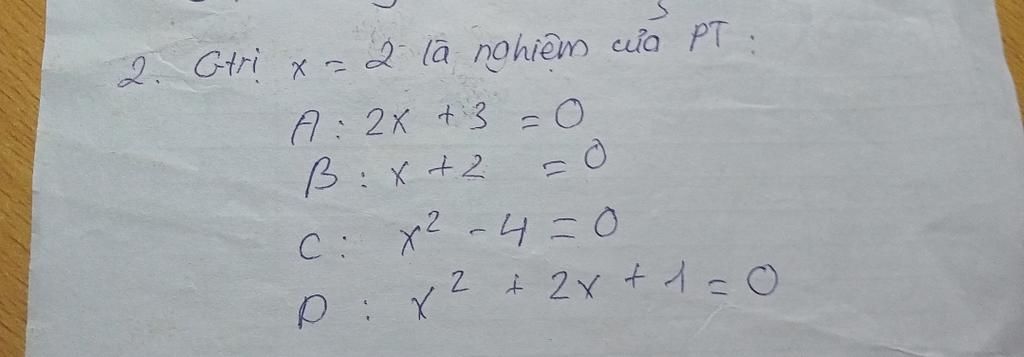 2. Gtrị x = 2 là nghiệm của PT :
A : 2x + 3 = 0
B : x + 2 = 0
C : x² - 4 = 0
D : x² + 2x + 1 = 0